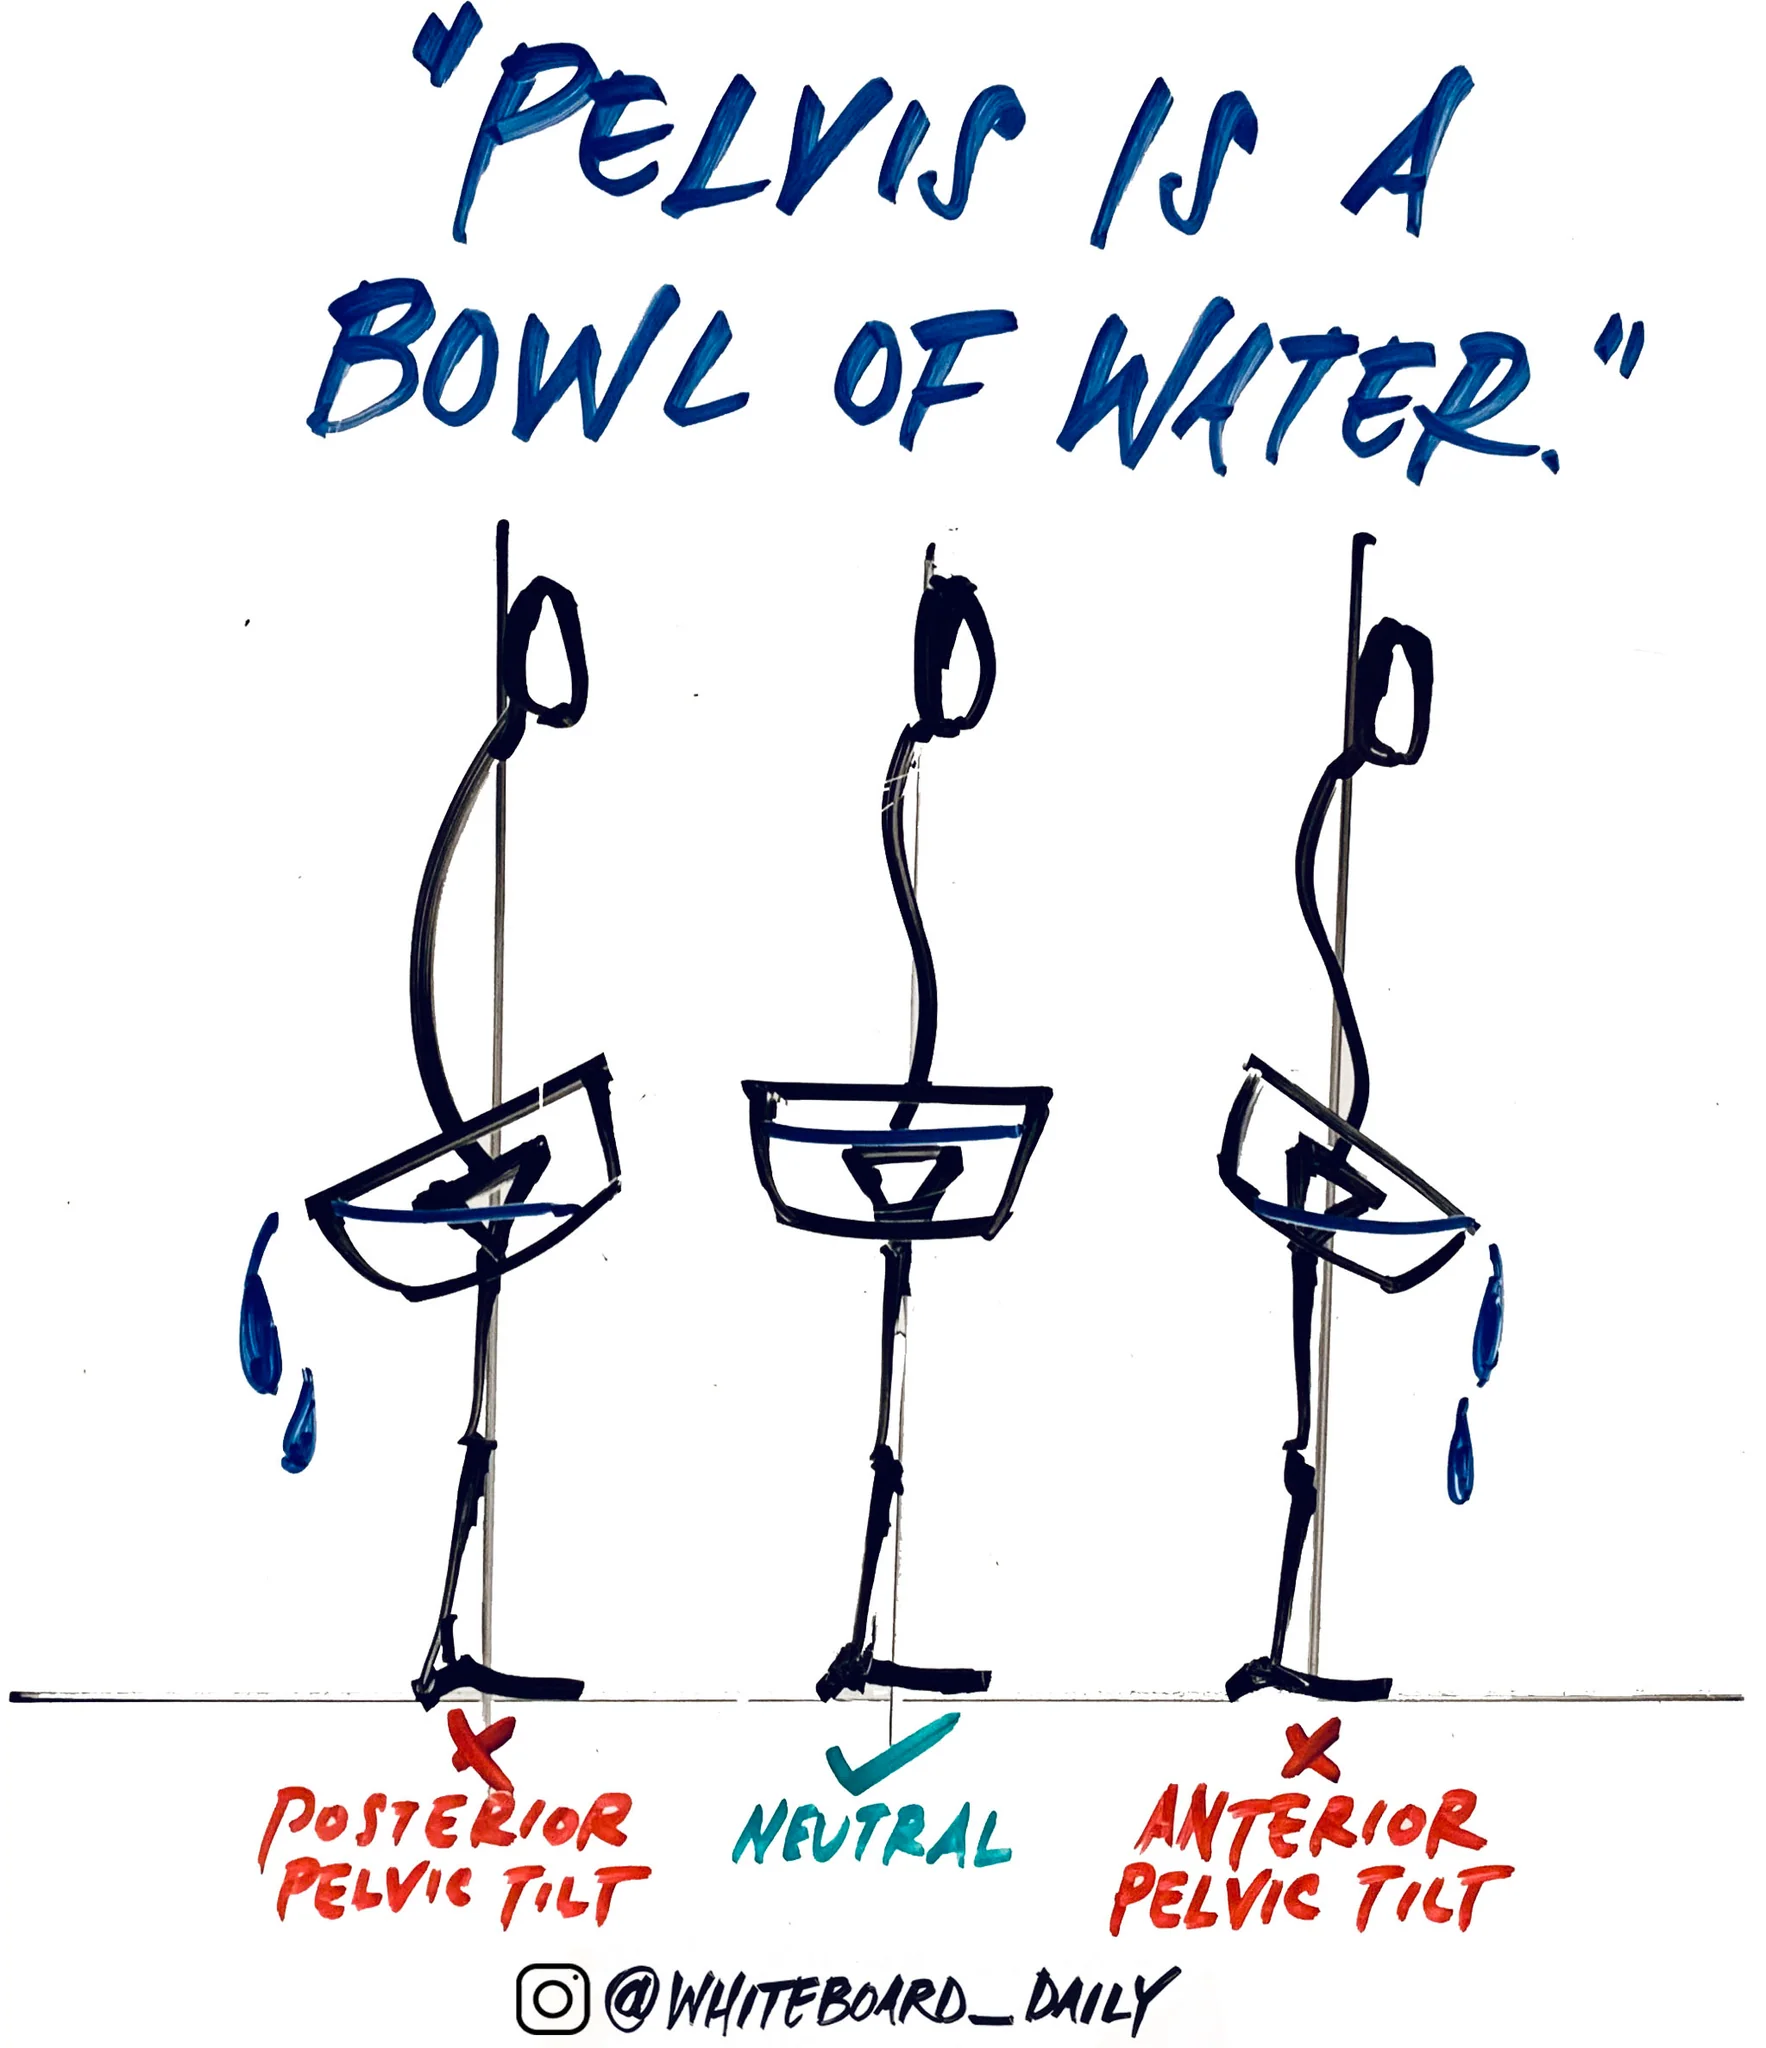 "PELVIS IS A
BOWL OF WATER."
POSTERIOR
PELVIC TILT
NEUTRAL
ANTERIOR
PELVIC TILT
@WHITEBOARD_DAILY